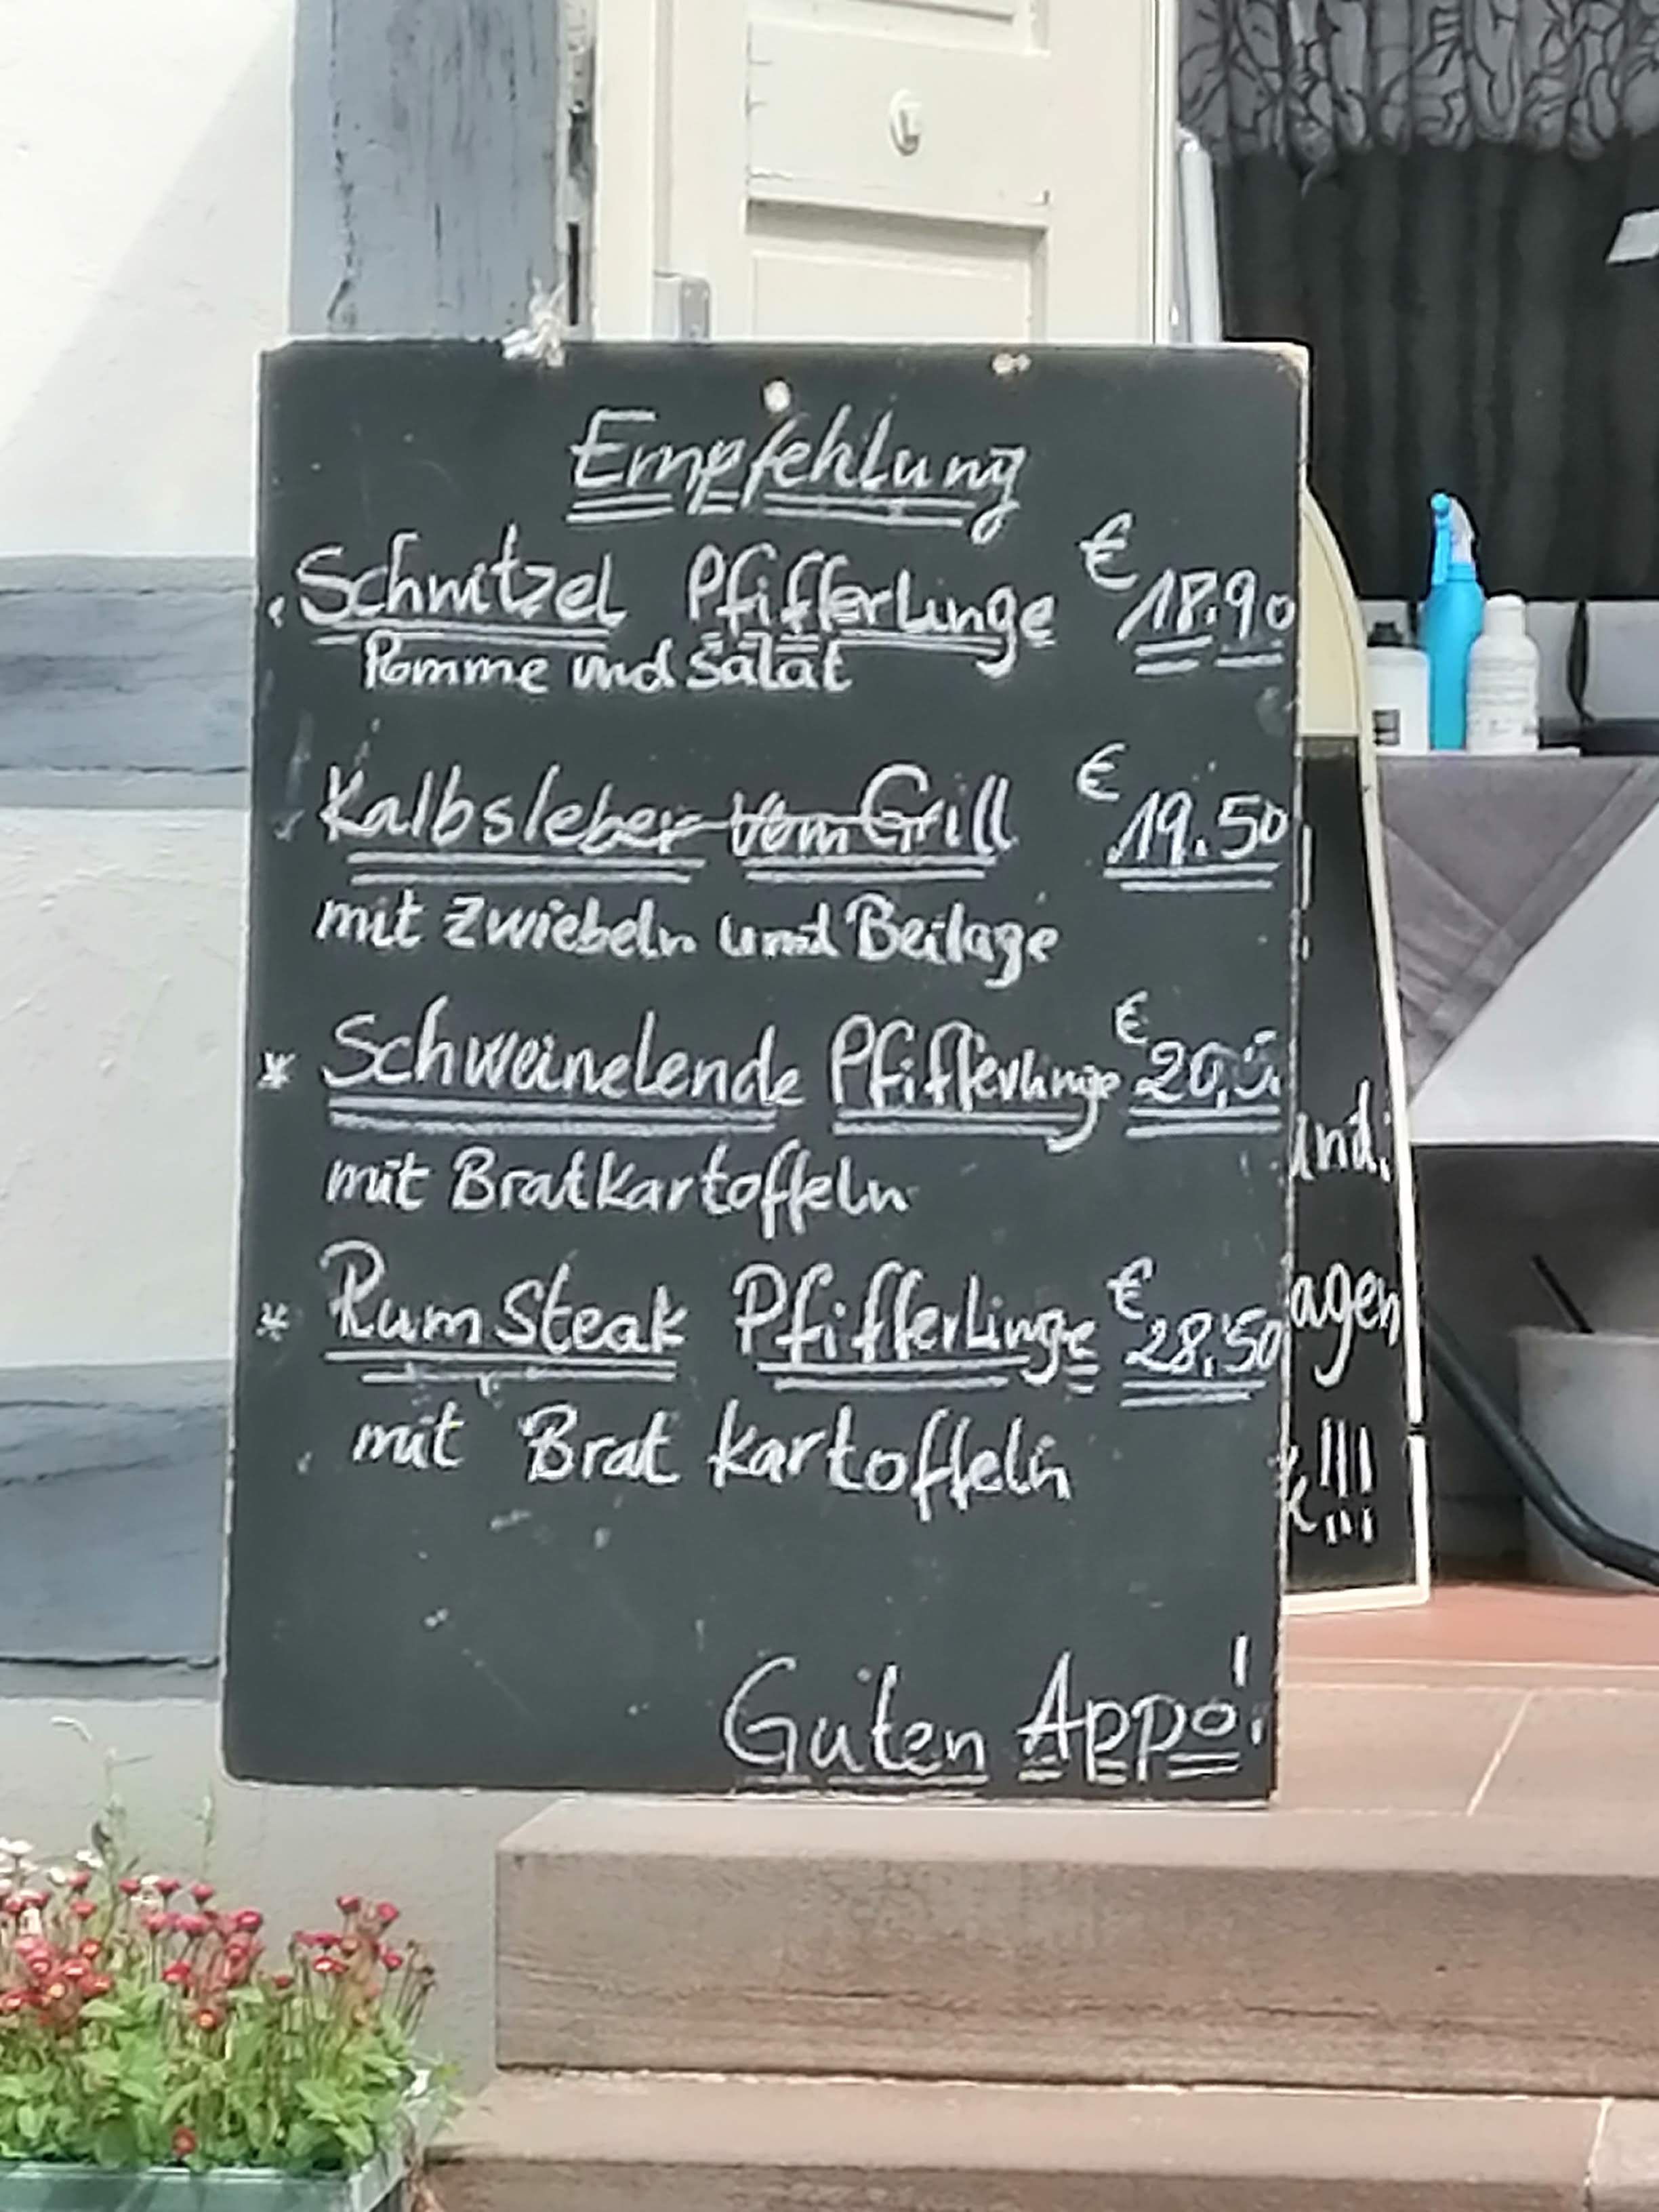 Empfehlung
Schnitzel Pfifferlinge € 18.90
Pomme und Salat
Kalbsleber Vom Grill € 19.50
mit Zwiebeln und Beilage
* Schweinelende Pfifferlinge €
mit Bratkartoffeln
* Rum Steak Pfifferlinge € 28,50
mit Brat kartoffeln
Guten Appo!
und.
agen
!!!